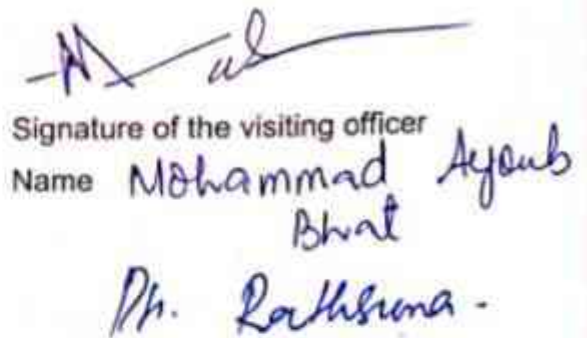 Signature of the visiting officer
Name Mohammad Ayoub
Bhat
Ph. Rathsuna.